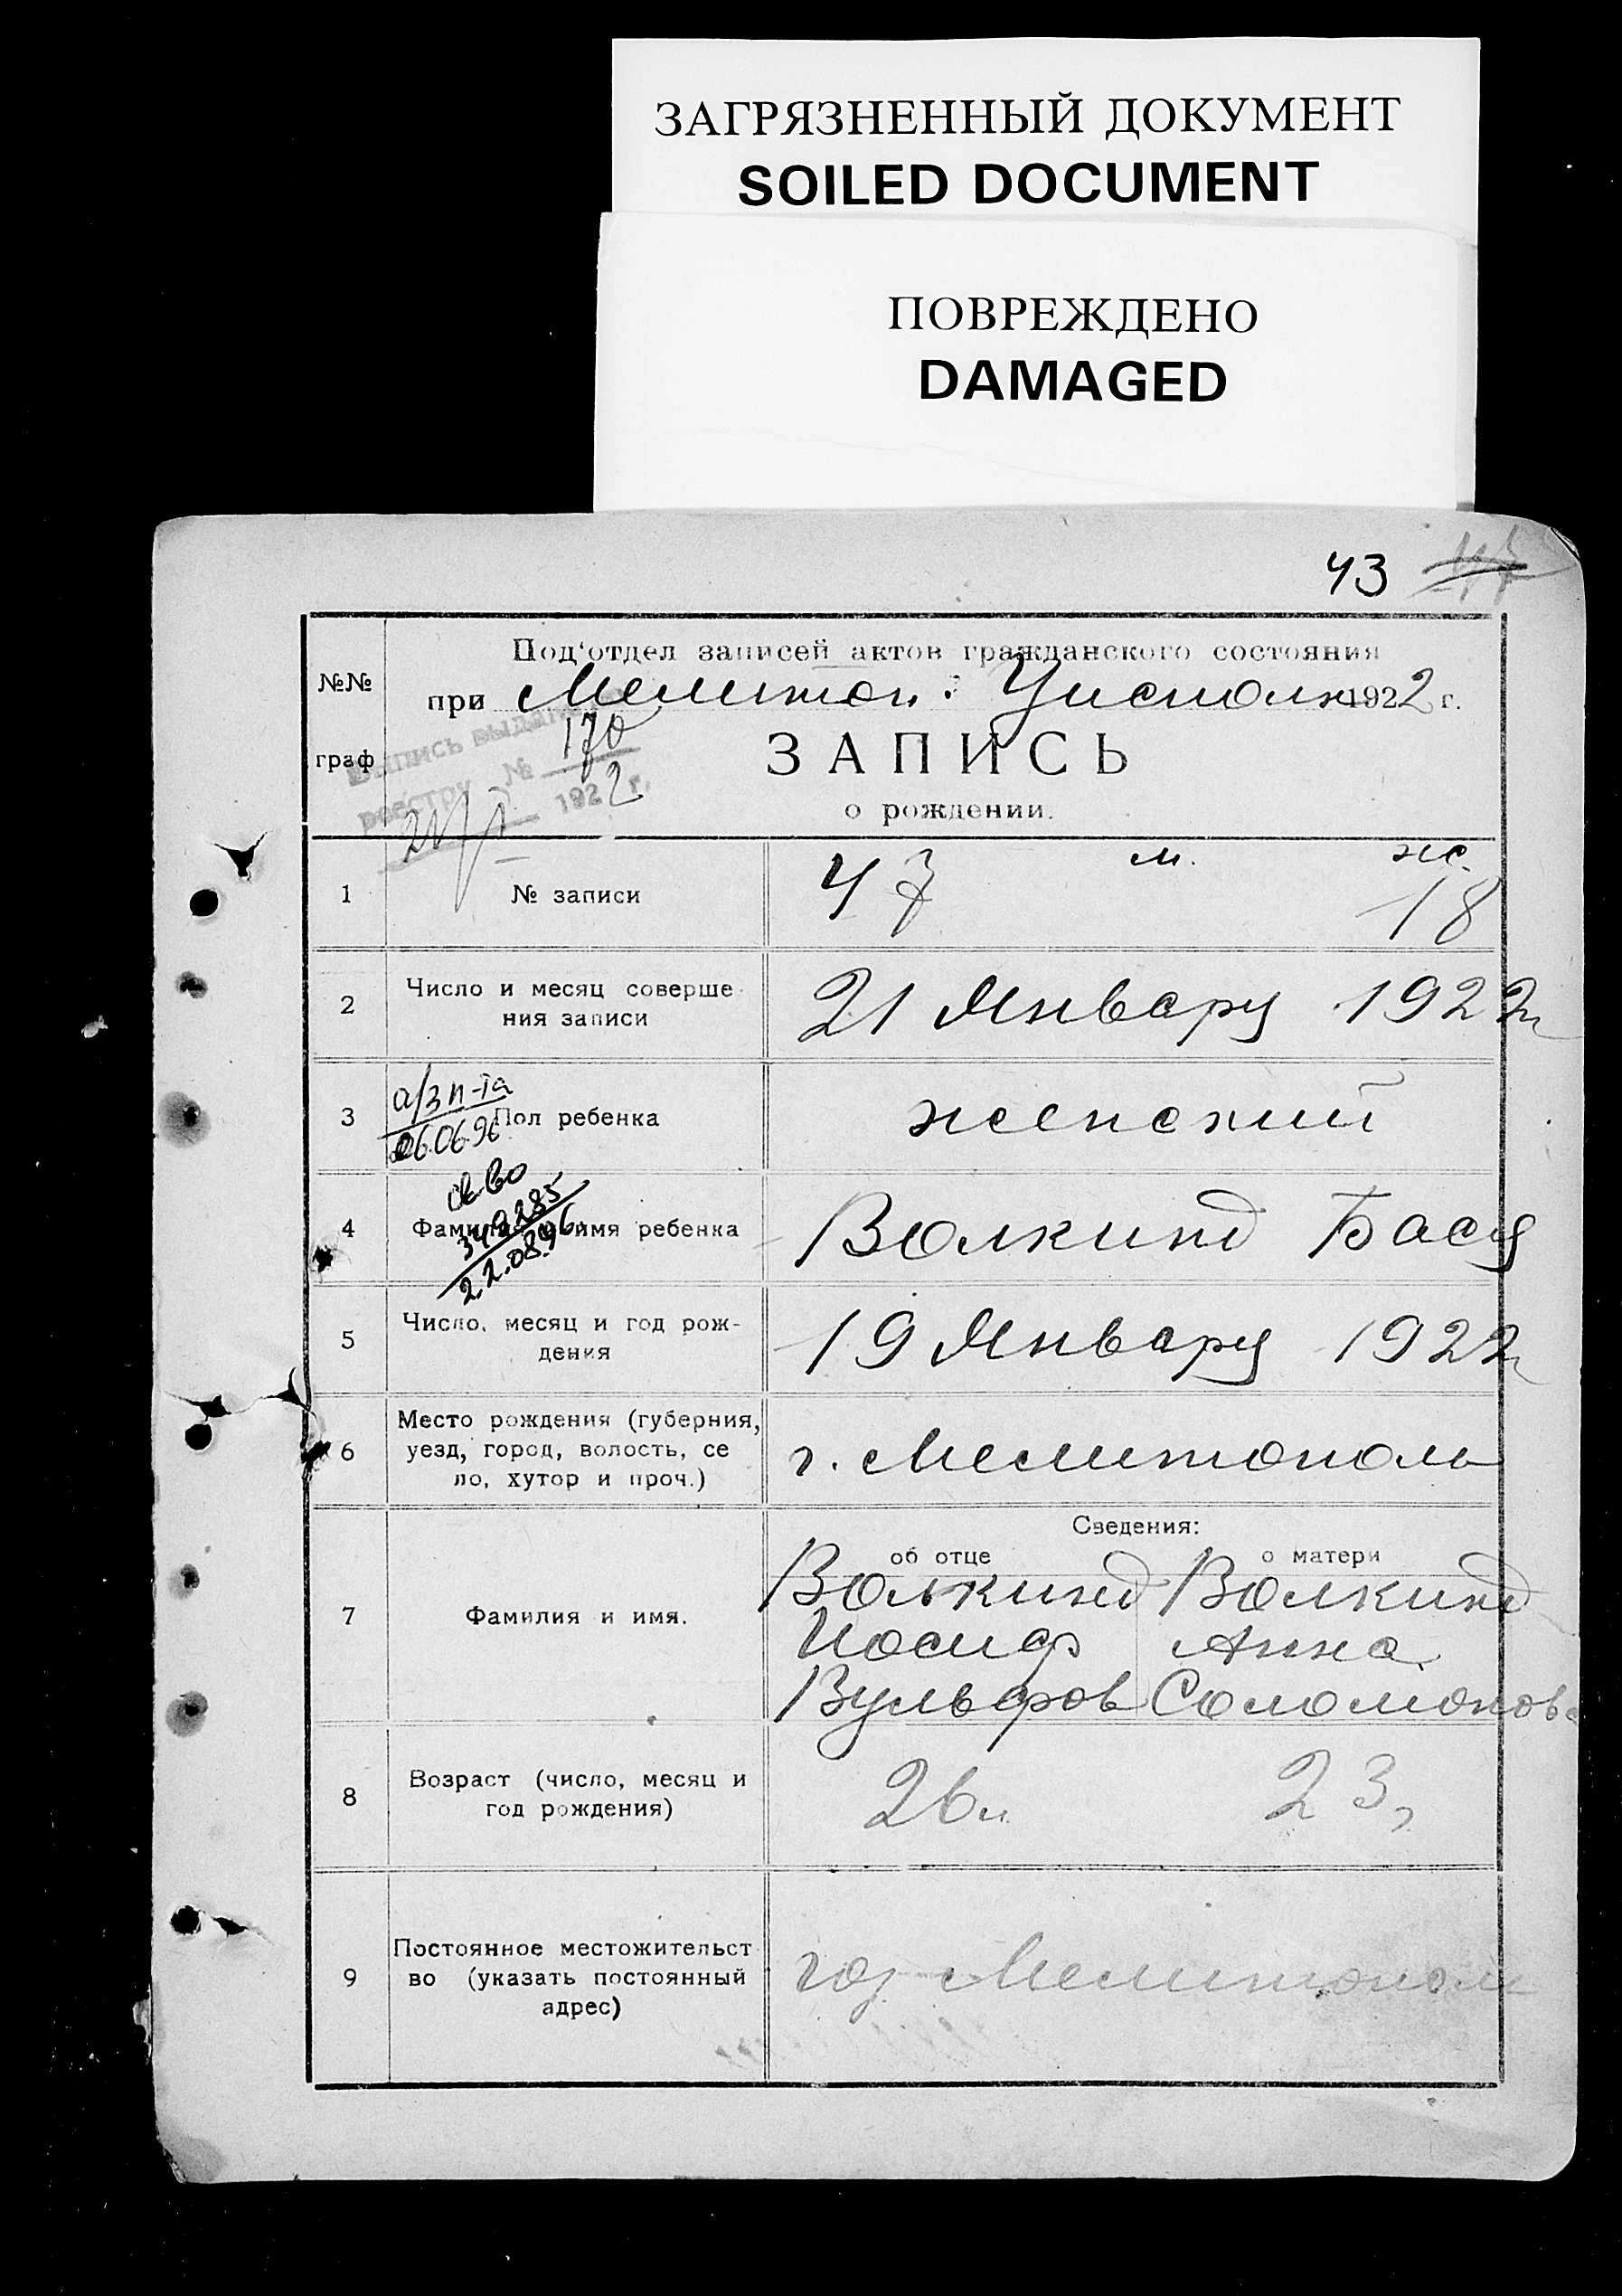 ЗАГРЯЗНЕННЫЙ ДОКУМЕНТ
SOILED DOCUMENT
ПОВРЕЖДЕНО
DAMAGED
43
№№
граф
Под'отдел записей актов гражданского состояния
при Мелитоп. Уисполк 1922 г.
Выпись выдана
реестру № 170
21/I 1922 г.
ЗАПИСЬ
о рождении.
1 № записи 47 м. ж. 18
2 Число и месяц соверше
ния записи
21 Январу 1922 г
3 Пол ребенка женский
а/з п-та
06.06.96
4 Фамилия и имя ребенка Волкинд Бася
св-во
349285
22.08.96
5 Число, месяц и год рож-
дения
19 Январу 1922 г
6 Место рождения (губерния,
уезд, город, волость, се
ло, хутор и проч.)
г. Мелитополь
Сведения:
об отце о матери
7 Фамилия и имя.
Волькинд Волкинд
Иосиф Анна
Вульфов Соломонов
8 Возраст (число, месяц и
год рождения)
26 л 23 г
9 Постоянное местожительст
во (указать постоянный
адрес)
гор Мелитополь